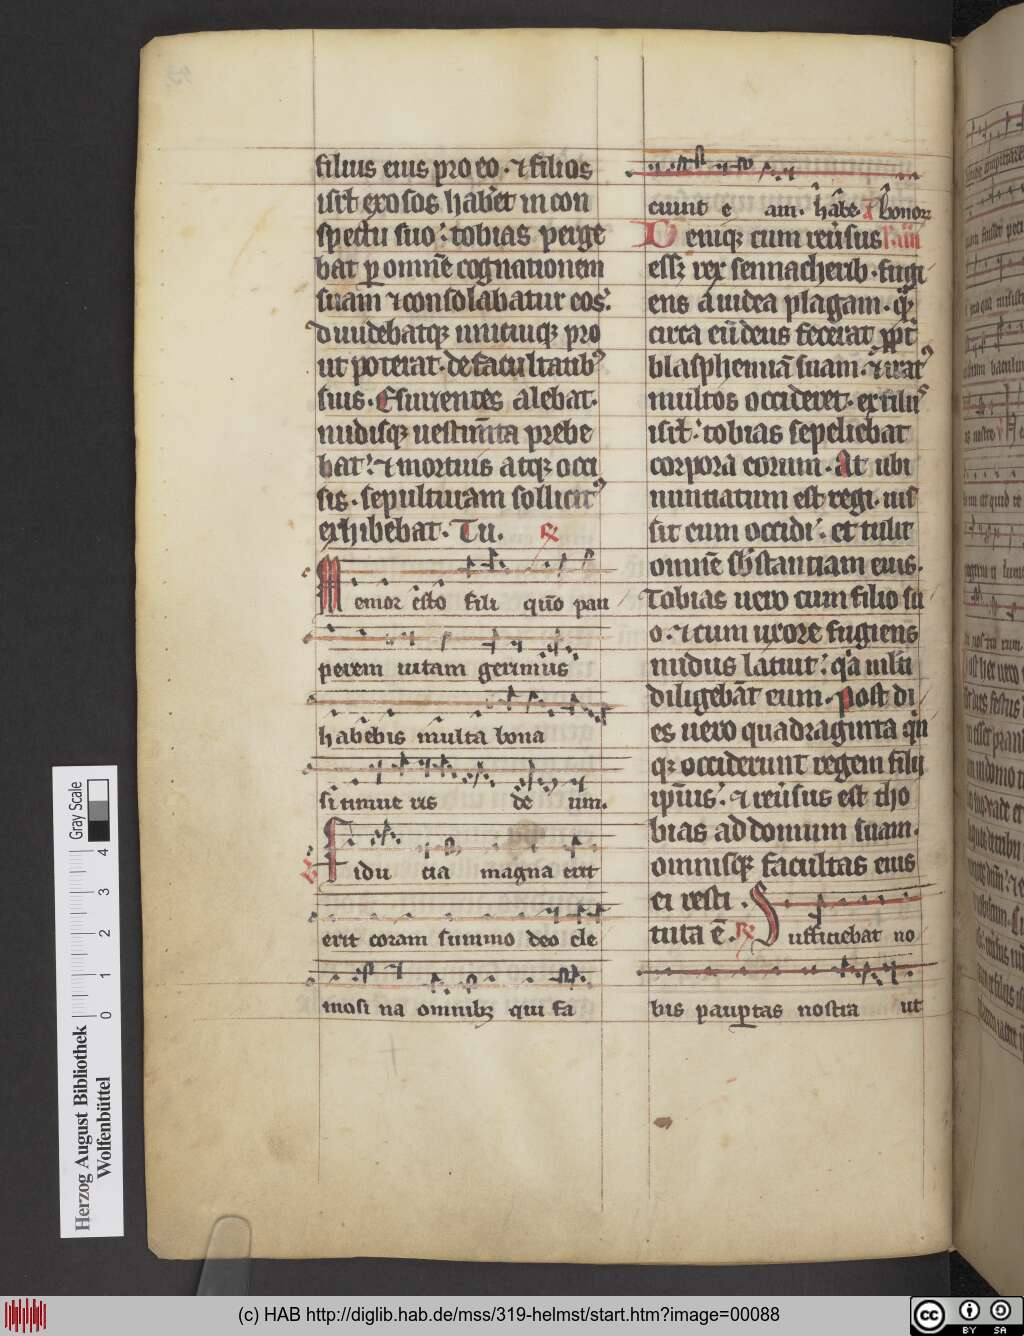 filius eius pro eo · ⁊ filios
isrl̄ exosos haberet in con
spectu suo : tobias perge
bat ꝑ omnē cognationem
suam ⁊ consolabatur eos :
diuidebatqꝫ unicuiqꝫ pro
ut poterat · de facultatibꝰ
suis · Esurientes alebat ·
nudisqꝫ uestim̄ta prebe
bat : ⁊ mortuis atqꝫ occi
sis · sepulturam sollicitꝰ
exhibebat · Tu . ℞
Memor esto fili quō pau
perem uitam gerimus
habebis multa bona
si timue ris de um .
℣ Fidu cia magna erit
erit coram summo deo ele
mosi na omnibꝫ qui fa
ciunt e am . habe . bonoꝝ
Deniqꝫ cum reuˀsus
essꝫ rex sennacherib · fugi
ens a iudea plagam · qꝫ
circa eū deus fecerat ꝓpt̄
blasphemiā suam · ⁊ iratꝰ
multos occideret · ex filiis
isrl̄ : tobias sepeliebat
corpora eorum · At ubi
nuntiatum est regi · ius
sit eum occidi : et tulit
omnē sb̄stantiam eius ·
Tobias uero cum filio su
o · ⁊ cum uxore fugiens
nudus latuit : q̄a m̄lti
diligebāt eum · Post di
es uero quadraginta q̄n
qꝫ occiderunt regem filij
ipius : ⁊ reuˀsus est tho
bias ad domum suam ·
omnisqꝫ facultas eius
ei resti .
tuta ē . ℞ Sufficiebat no
bis pauꝑtas nostra ut
Herzog August Bibliothek
Wolfenbüttel
0 1 2 3 4
Gray Scale
(c) HAB http://diglib.hab.de/mss/319-helmst/start.htm?image=00088
cc BY SA